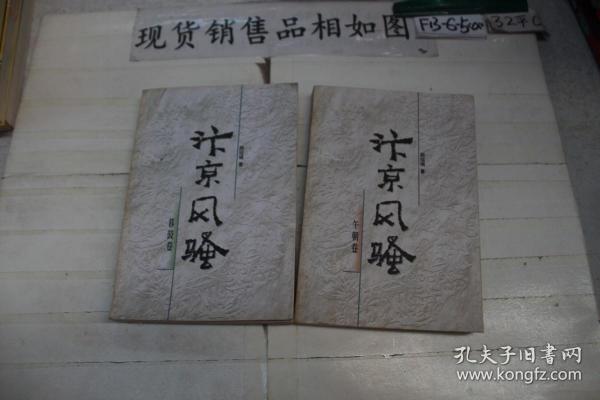 现货销售品相如图
F13-6-5
32开
汴京风骚
暮鼓卷
汴京风骚
午朝卷
著
孔夫子旧书网
www.kongfz.com